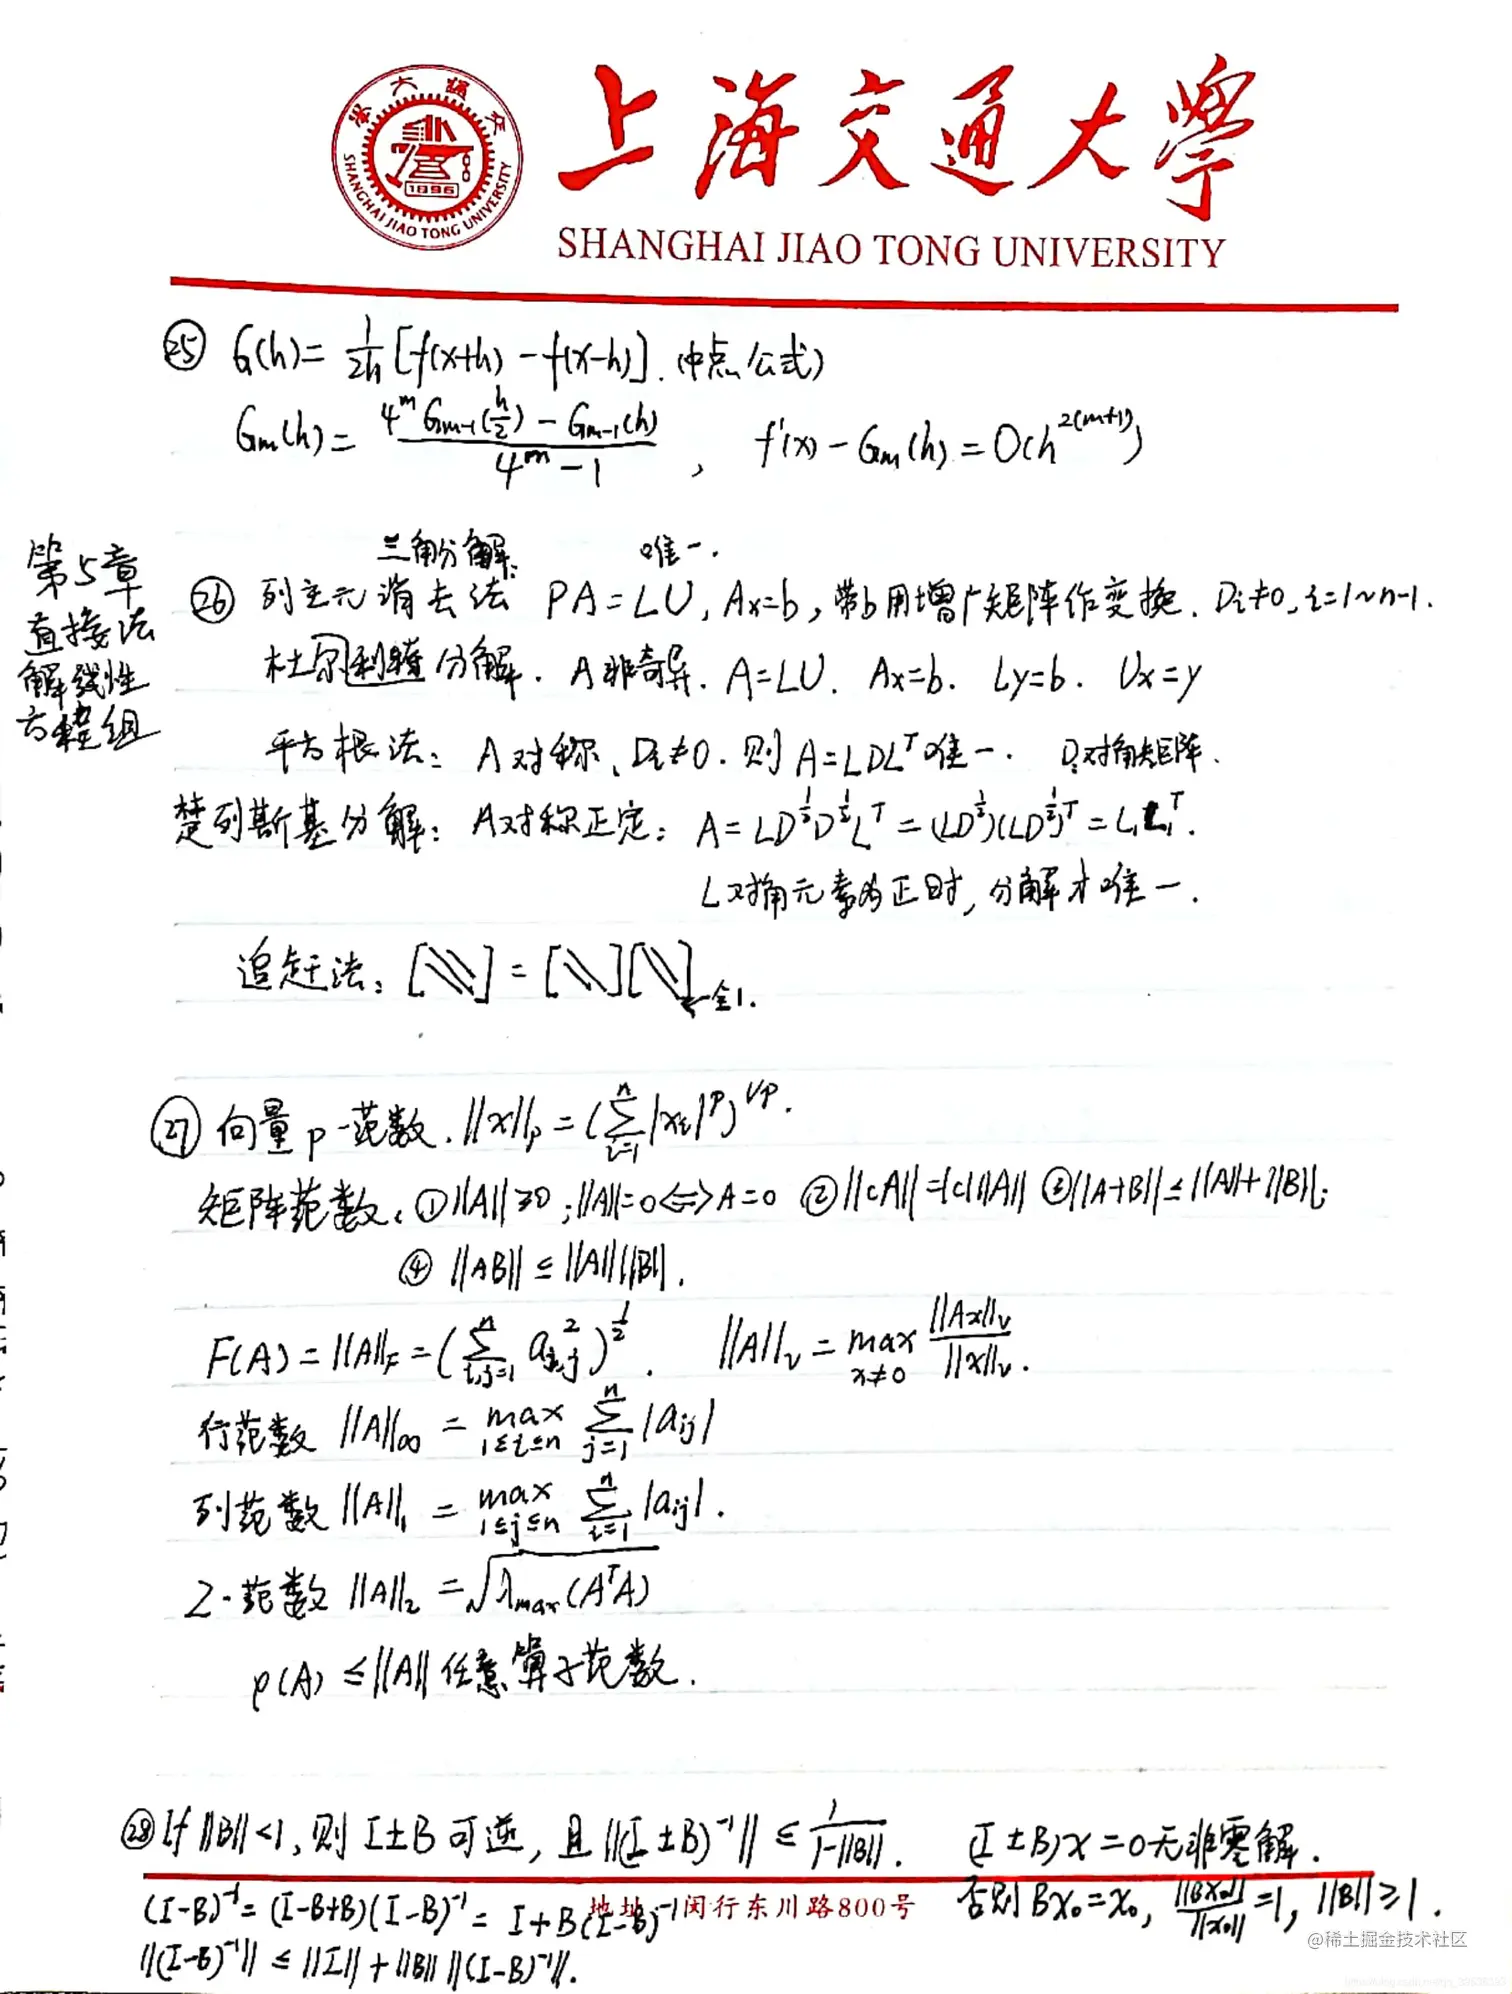 上海交通大学
SHANGHAI JIAO TONG UNIVERSITY
1896
SHANGHAI JIAO TONG UNIVERSITY
㉕ G(h)= 1/2h [f(x+h) - f(x-h)]. (中点公式)
Gm(h)= (4^m G_{m-1}(h/2) - G_{m-1}(h))/(4^m - 1) , f'(x) - Gm(h) = O(h^{2(m+1)})
第5章
直接法
解线性
方程组
三角分解. 唯一.
㉖ 列主元消去法 PA=LU, Ax=b, 带b用增广矩阵作变换. Di≠0, i=1~n-1.
杜尔利特分解. A非奇异. A=LU. Ax=b. Ly=b. Ux=y
平方根法: A对称、Di≠0. 则 A=LDL^T 唯一. D对角矩阵.
楚列斯基分解: A对称正定: A=LD^{1/2}D^{1/2}L^T=(LD^{1/2})(LD^{1/2})^T=L₁L₁^T.
L对角元素为正时, 分解才唯一.
追赶法: [ ] = [ ][ ] ←全1.
㉗ 向量p-范数. ||x||_p = (∑_{i=1}^n |x_i|^p)^{1/p}.
矩阵范数. ①||A||≥0; ||A||=0⟺A=0 ②||cA||=|c|||A|| ③||A+B||≤||A||+||B||;
④ ||AB|| ≤ ||A||||B||.
F(A)=||A||_F=(∑_{i,j=1}^n a_{i,j}^2)^{1/2}. ||A||_v = max_{x≠0} ||Ax||_v/||x||_v.
行范数 ||A||_∞ = max_{1≤i≤n} ∑_{j=1}^n |a_{ij}|
列范数 ||A||_1 = max_{1≤j≤n} ∑_{i=1}^n |a_{ij}|.
2-范数 ||A||_2 = √λ_max(A^T A)
ρ(A) ≤ ||A|| 任意算子范数.
㉘ If ||B||<1, 则 I±B 可逆, 且 ||(I±B)^{-1}|| ≤ 1/(1-||B||). (I±B)x=0无非零解.
(I-B)^{-1} = (I-B+B)(I-B)^{-1} = I+B(I-B)^{-1} 否则 Bx₀=x₀, ||Bx₀||/||x₀||=1, ||B||≥1.
地址 闵行东川路800号
||(I-B)^{-1}|| ≤ ||I|| + ||B|| ||(I-B)^{-1}||.
@稀土掘金技术社区